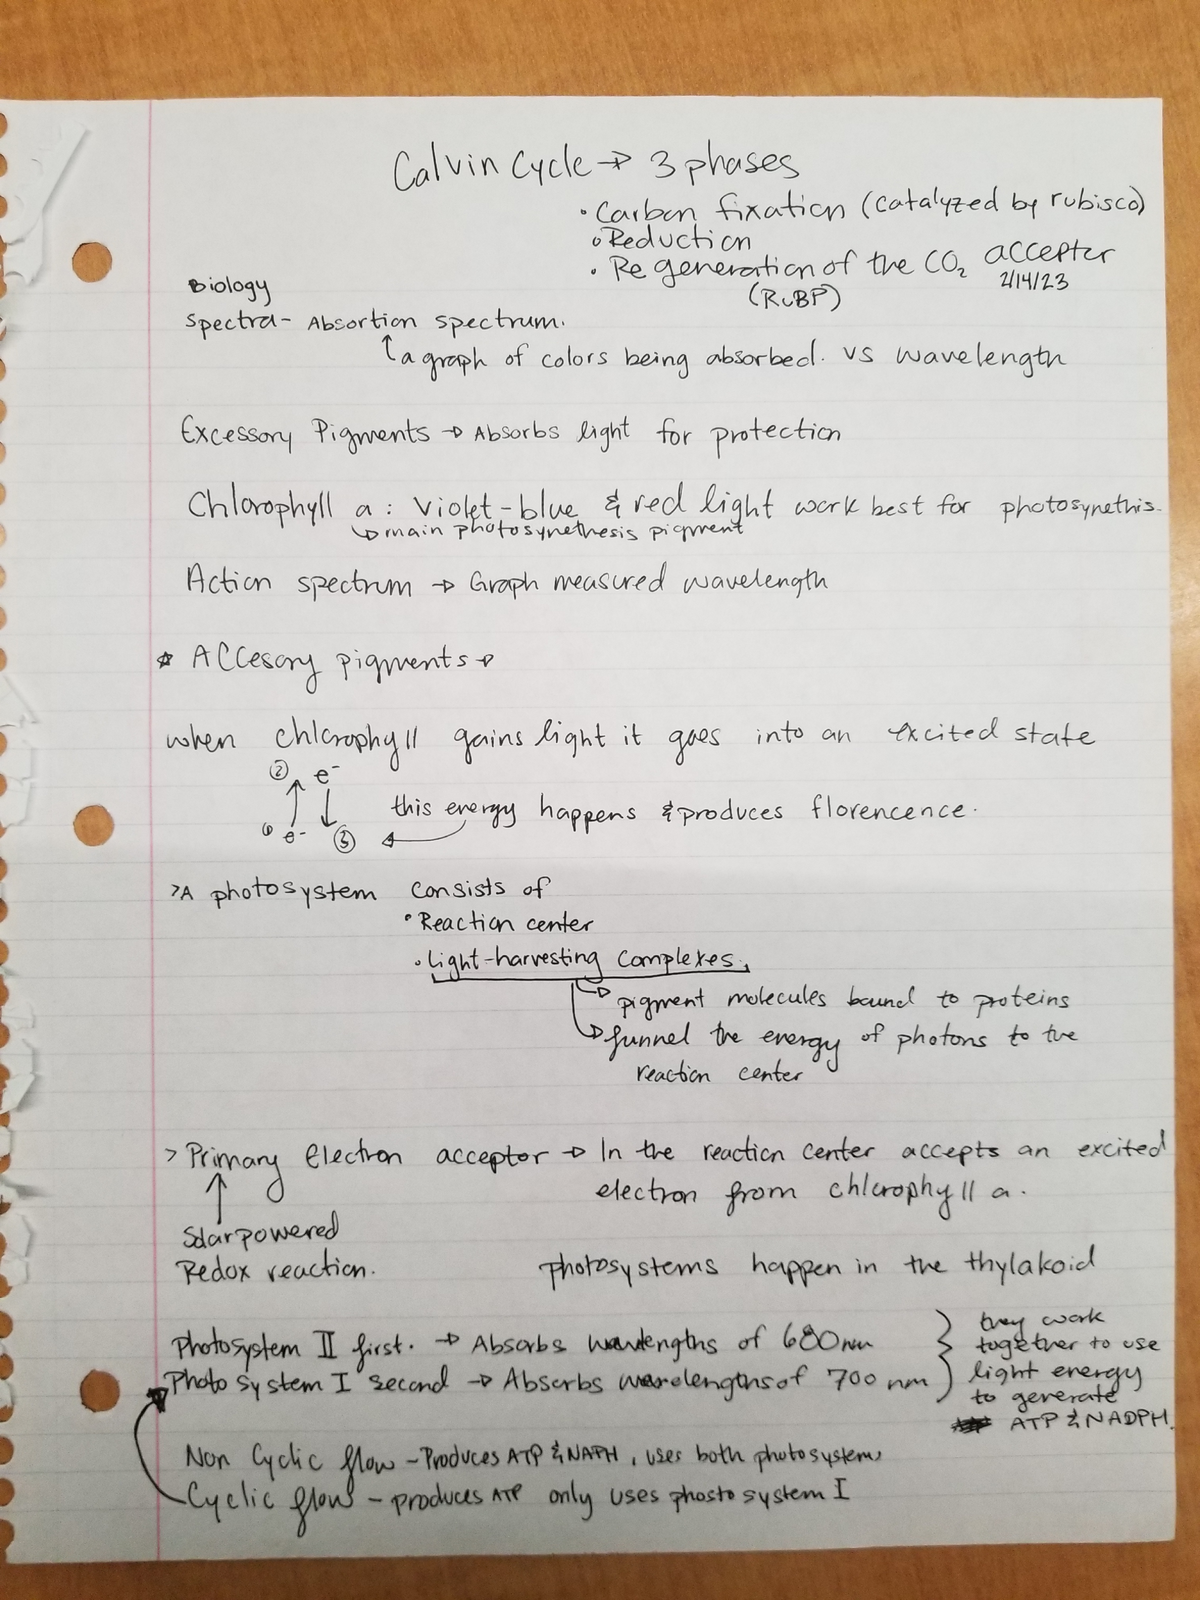 Calvin Cycle → 3 phases
• Carbon fixation (catalyzed by rubisco)
• Reduction
• Regeneration of the CO₂ accepter
(RuBP)
2/14/23
Biology
Spectra - Absortion spectrum.
↑ a graph of colors being absorbed. vs wavelength
Excessory Pigments → Absorbs light for protection
Chlorophyll a : Violet-blue & red light work best for photosynethis.
↳ main photosynethesis pigment
Action spectrum → Graph measured wavelength
* Accesory pigments →
when chlorophyll gains light it goes into an excited state
② e⁻
this energy happens & produces florencence.
① e⁻ ③
> A photosystem consists of
• Reaction center
• Light-harvesting complexes.
↳ pigment molecules bound to proteins
↳ funnel the energy of photons to the
reaction center
> Primary electron acceptor → In the reaction center accepts an excited
electron from chlorophyll a.
Solar powered
Redox reaction.
photosystems happen in the thylakoid
Photosystem II first. → Absorbs wavlengths of 680nm
Photosystem I second → Absorbs wavelengths of 700 nm
they work
together to use
light energy
to generate
ATP & NADPH.
Non Cyclic flow - Produces ATP & NAPH, uses both photosystems
Cyclic flow - produces ATP only uses phosto system I